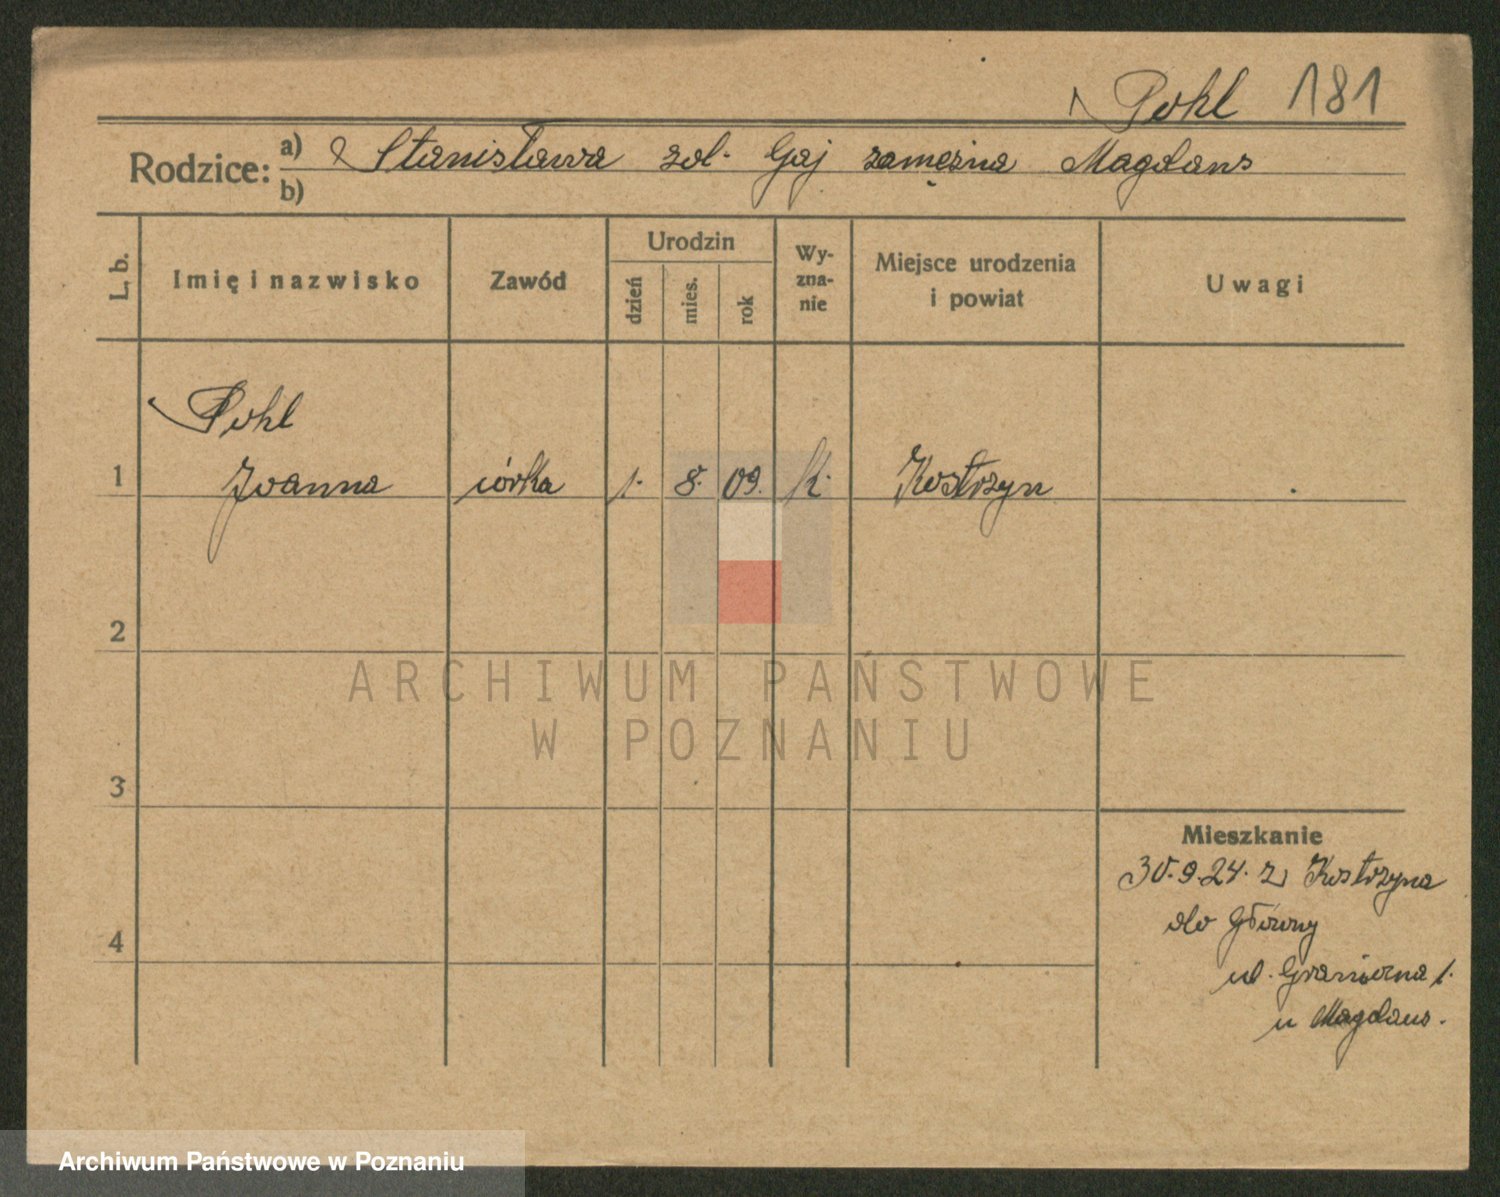 Pohl 181
Rodzice: a) Stanisława zd. Gaj zamężna Magdans
b)
L. b.
Imię i nazwisko
Zawód
Urodzin
dzień
mies.
rok
Wy-
zna-
nie
Miejsce urodzenia
i powiat
Uwagi
Pohl
1 Joanna córka 1. 8. 09. k. Kostrzyn
2
3
4
Mieszkanie
30.9.24. z Kostrzyna
do Główny
ul. Graniczna 1.
u Magdans.
ARCHIWUM PAŃSTWOWE
W POZNANIU
Archiwum Państwowe w Poznaniu